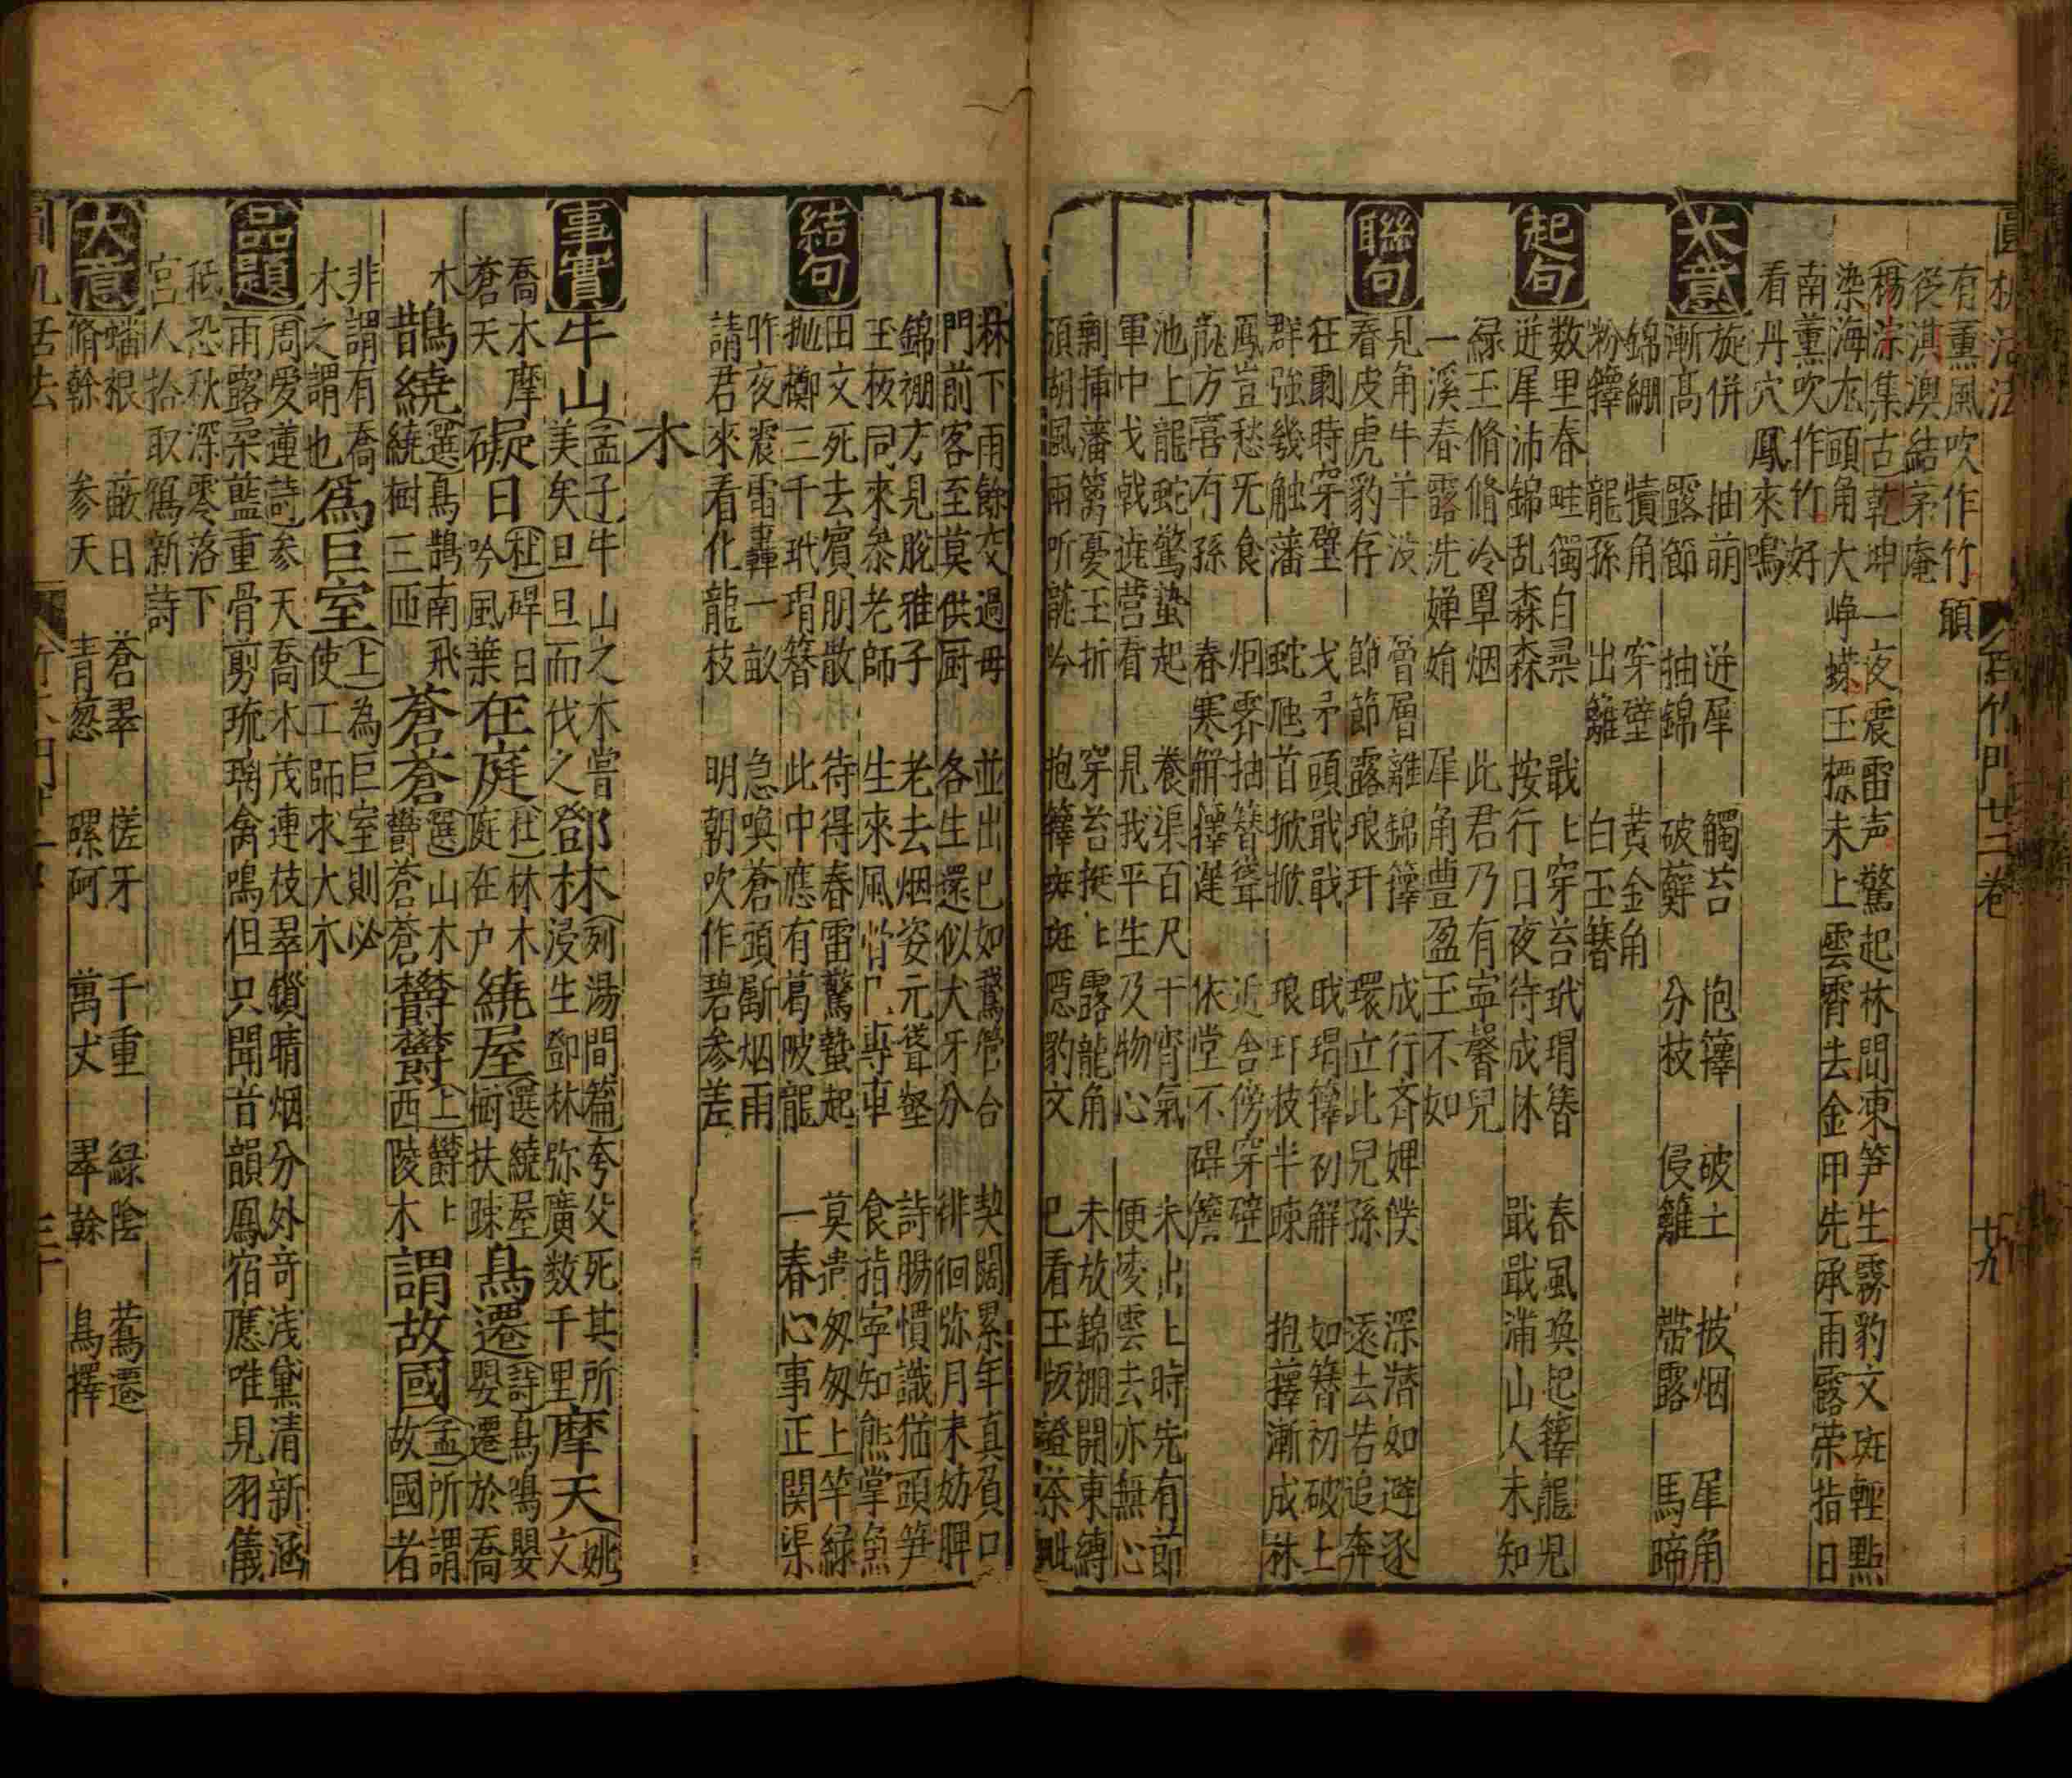 圓机活法 百竹門廿二卷 十九
有薰風吹作竹願
從淇澳結茅庵
楊淙集古乾坤一夜震雷声驚起林間凍笋生霧豹文斑輕點
染海尨頭角大崢嶸玉標未上雲霄去金甲先承雨露荣指日
南薰吹作竹好
看丹穴鳳來鳴
大意
旋併 抽萌 迸犀 觸苔 抱籜 破土 披烟 犀角
漸高 露節 抽錦 破蘚 分枝 侵籬 帶露 馬蹄
錦綳 犢角 穿壁 黃金角
粉籜 龍孫 出籬 白玉簪
起句
数里春畦獨自尋 戢〻穿苔玳瑁簪 春風喚起籜龍児
迸犀沛錦乱森森 按行日夜待成林 戢戢满山人未知
緑玉脩脩冷罩烟 此君乃有寧馨兒
一溪春露洗嬋娟 犀角豊盈玉不如
聯句
見角牛羊没 層層離錦籜 成行斉婢僕 深潜如避逐
春皮虎豹存 節節露琅玕 環立此兒孫 遠去若追奔
狂劚時穿壁 戈矛頭戢戢 玳瑁籜初解 如簪初破土
群強幾触藩 虵虺首掀掀 琅玕枝半疎 抱籜漸成林
鳳豈愁旡食 烟霽抽簪聳 近舍傍穿壁
龍方喜有孫 春寒解籜遲 依堂不碍簷
池上龍蛇驚蟄起 養渠百尺干霄氣 未出土時先有節
軍中戈戟遶营看 見我平生及物心 便凌雲去亦無心
插藩籬憂玉折 穿苔挺〻露龍角 未放錦棚開東縛
風雨听龍吟 抱籜斑斑隱豹文 已看玉版證茶毗
林下雨餘交過母 並出已如鵞管合 契闊累年真負口
門前客至莫供厨 各生還似犬牙分 徘徊弥月未妨脾
錦棚方見脫雅子 老去烟姿元聳壑 詩腸慣識猫頭笋
玉板同來叅老師 生來風骨專車 食指寧知熊掌魚
結句
田文死去賓朋散 待得春雷驚蟄起 莫遣匆匆上竿緑
抛擲三千玳瑁簪 此中應有葛陂龍 一春心事正関渠
昨夜震雷轟一畝 急喚蒼頭斸烟雨
請君來看化龍枝 明朝吹作碧参差
木
事實
牛山(孟子)牛山之木嘗美矣旦旦而伐之
鄧林(列湯間篇)夸父死其所浸生鄧林弥廣数千里
摩天(姚文)喬木摩蒼天
礙日(杜)碍日吟風葉
在庭(杜)林木庭在户
繞屋(選)繞屋樹扶踈
鳥遷(詩)鳥鳴嚶嚶遷於喬木
鵲繞(選)烏鵲南飛繞樹三匝
蒼蒼(選)山木欝蒼蒼
欝欝(上)欝〻西陵木
謂故國(孟)所謂故國者非謂有喬木之謂也
為巨室(上)為巨室則必使工師求大木
品題
(周爱蓮詩)参天喬木茂連枝翠鎖晴烟分外竒浅黛清新涵
雨露柔藍重骨剪琉璃禽鳴但只聞音韻鳳宿應唯見羽儀
秪恐秋深零落下
宮人拾取寫新詩
大意
蟠根 蔽日 蒼翠 槎牙 千重 緑陰 鶯遷
脩幹 参天 青葱 磥砢 萬丈 翠幹 鳥擇
圓机活法 三十